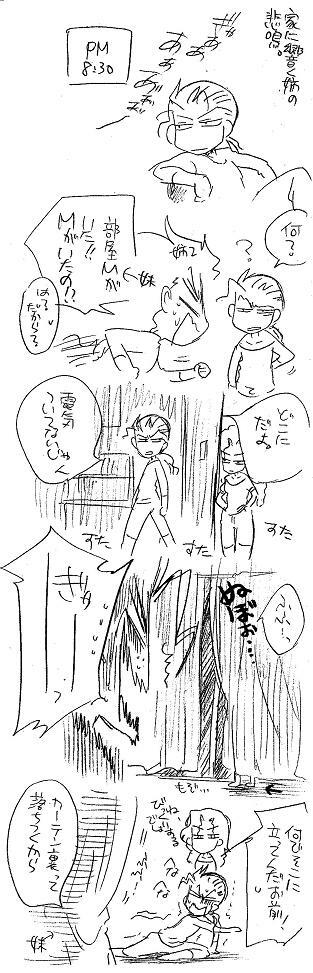 家に響く姉の
悲鳴。
PM
8:30
ぎゃ
あぁ
あぁ
あぁ
何?
?
姉2
部屋にMが
いた!!
Mがいたの!?
←妹
は?
だから?
どこに
だよ
電気
ついてないじゃん
すた
すた
すた
ふふ…
ぬぼぉ…
ぎゃーーーっ
もぞ…
何でそこに
立ってんだお前!
へな
へな
カーテン裏って
落ちつくから
妹